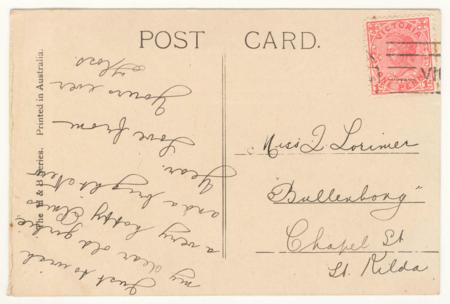 POST CARD.
VICTORIA
VI
The H & B Series. Printed in Australia.
Just to wish
my dear old
a very happy
and a bright New
Year.
Love from
Yours ever
Floss
Miss Q Lorimer
"Bullenbong"
Chapel St
St. Kilda